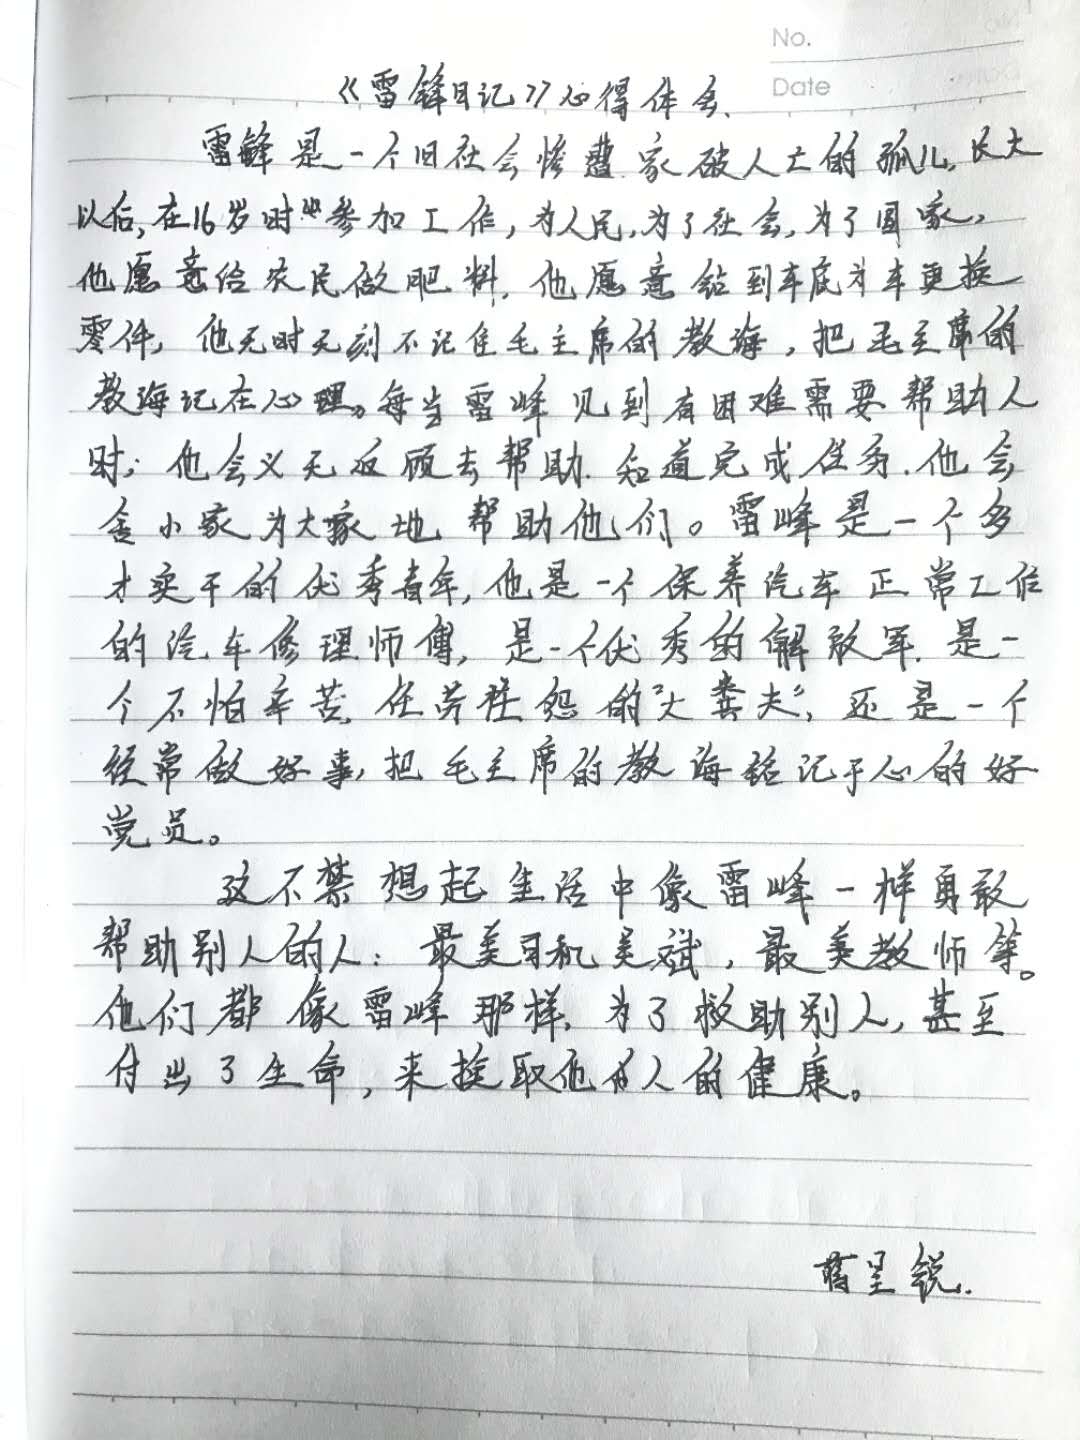 No.
Date
《雷锋日记》心得体会.
雷锋是一个旧社会惨遭家破人亡的孤儿,长大
以后,在16岁时参加工作,为人民,为了社会,为了国家,
他愿意给农民做肥料,他愿意钻到车底为车更换
零件,他无时无刻不记住毛主席的教诲,把毛主席的
教海记在心理。每当雷峰见到有困难需要帮助人
时;他会义无反顾去帮助.知道完成任务.他会
舍小家为大家地帮助他们。雷峰是一个多
才实干的优秀青年,他是一个保养汽车正常工作
的汽车修理师傅,是一个优秀的解放军.是一
个不怕辛苦,任劳任怨的"大粪夫",还是一个
经常做好事,把毛主席的教海铭记于心的好
党员。
这不禁想起生活中像雷峰一样勇敢
帮助别人的人:最美司机吴斌,最美教师等。
他们都像雷峰那样,为了救助别人,甚至
付出了生命,来换取他人的健康。
蒋呈锐.